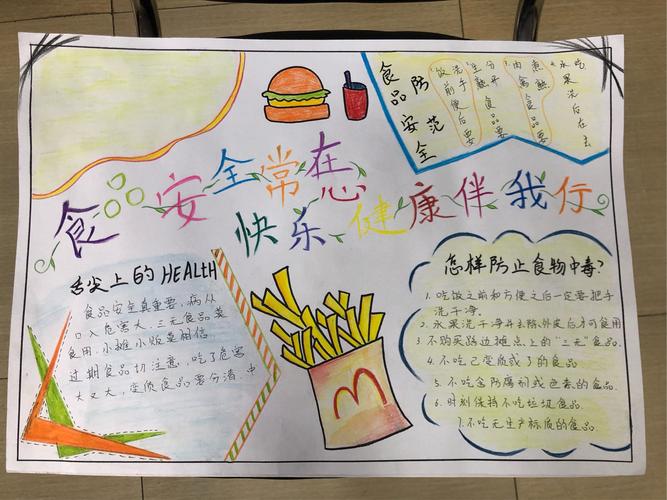 食品安全常在心
快乐健康伴我行
食品安全
防范
饭前便后要
洗手
生熟食品要
分开
肉禽食品要
煮熟
水果洗后在去
吃
舌尖上的HEALTH
食品安全真重要,病从
口入危害大.三无食品莫
食用.小摊小贩莫相信
过期食品切注意,吃了危害
大又大,变质食品要分清.中
怎样防止食物中毒?
1.吃饭之前和方便之后一定要把手
洗干净.
2.水果洗干净并去除外皮后才可食用
3.不购买路边摊点上的"三无"食品.
4.不吃己变质或了的食品
5.不吃含防腐剂或色素的食品.
6.时刻保持不吃垃圾食品.
7.不吃无生产标质的食品.